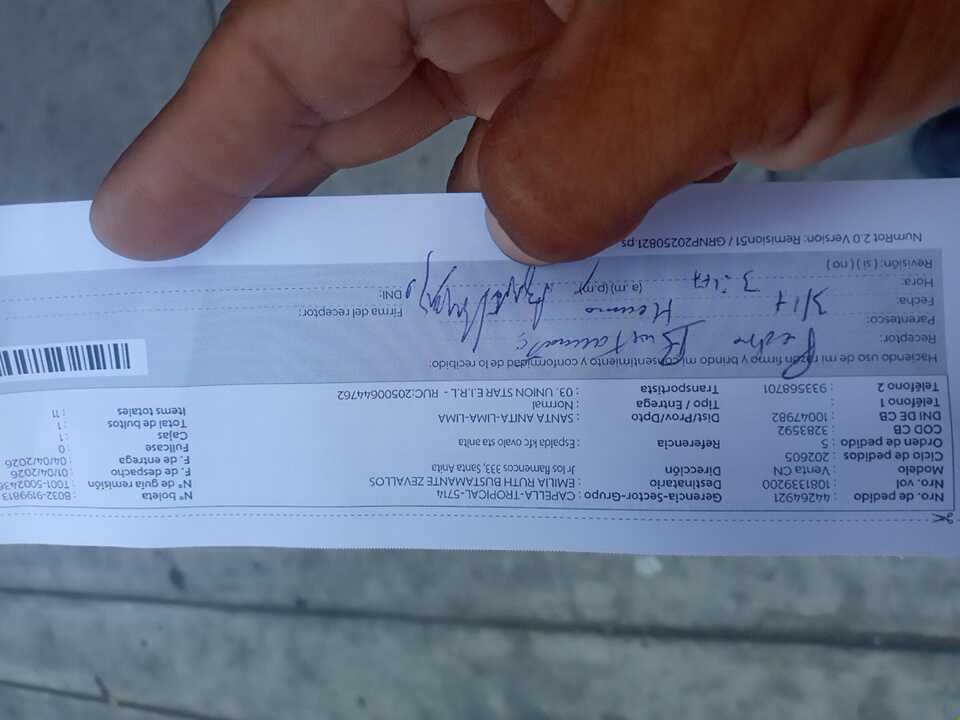 Nro. de pedido : 144264921 Gerencia-Sector-Grupo : CAPELLA-TROPICAL-5714 N° boleta : B032-9199813
Nro. vol : 1081339200 Destinatario : EMILIA RUTH BUSTAMANTE ZEVALLOS N° de guía remisión : T001-5002436
Modelo : Venta CN Dirección : Jr los flamencos 333, Santa Anita F. de despacho : 01/04/2026
Ciclo de pedidos : 202605 F. de entrega : 04/04/2026
Orden de pedido : 5 Referencia : Espalda kfc ovalo sta anita Fullcase : 0
COD CB : 3283592 Cajas : 1
DNI DE CB : 10047982 Dist/Prov/Dpto : SANTA ANITA-LIMA-LIMA Total de bultos : 1
Teléfono 1 : Tipo / Entrega : Normal Items totales : 11
Teléfono 2 : 933568701 Transportista : 03. UNION STAR E.I.R.L. - RUC:20500644762
Haciendo uso de mi razón firmo y brindo mi consentimiento y conformidad de lo recibido:
Receptor: Pedro Bustamante
Parentesco: Hermano
Fecha: 3/14 Firma del receptor:
Hora: (a.m) (p.m) DNI:
Revisión: ( si ) ( no )
NumRot 2.0 Version: Remision51 / GRNP20250821.ps